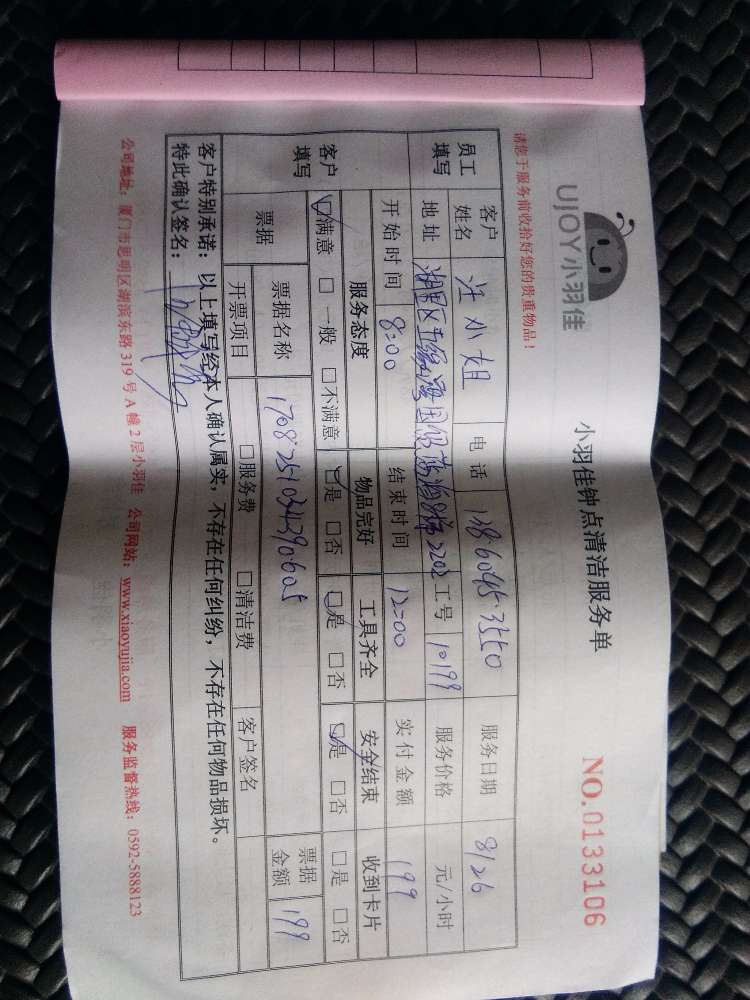 UJOY小羽佳
小羽佳钟点清洁服务单
NO.0133106
请您于服务前收拾好您的贵重物品！
员工填写 客户姓名 汪小姐 电话 13860453550 服务日期 8/26
地址 湖里区 8 2202 工号 10199 服务价格 元/小时
开始时间 8:00 结束时间 12:00 实付金额 199
客户填写 服务态度 物品完好 工具齐全 安全结束 收到卡片
☑满意 □一般 □不满意 ☑是 □否 ☑是 □否 ☑是 □否 □是 □否
票据 票据名称 17082510344290605 票据金额 199
开票项目 □服务费 □清洁费 客户签名
客户特别承诺：以上填写经本人确认属实，不存在任何纠纷，不存在任何物品损坏。
特此确认签名：
公司地址：厦门市思明区湖滨东路 319 号 A 幢 2 层小羽佳 公司网站：www.xiaoyujia.com 服务监督热线：0592-5888123